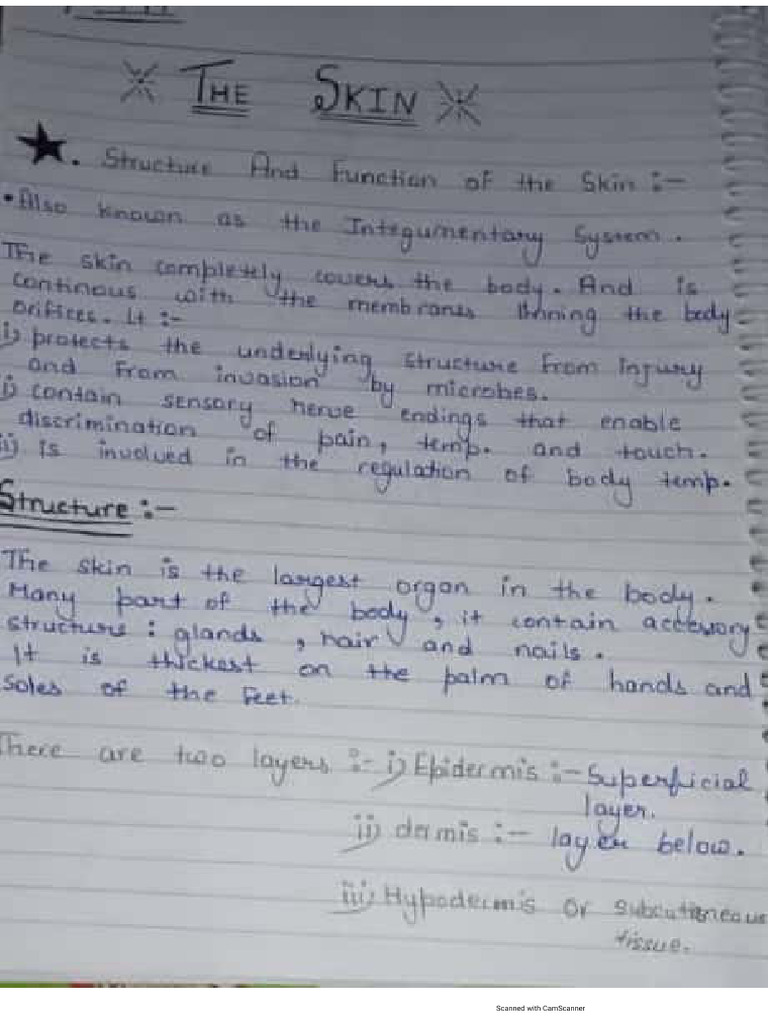 THE SKIN
Structure And Function of the Skin :-
• Also known as the Integumentary System.
The skin completely covers the body. And is
continous with the membrans linning the body
orifices. It :-
i) protects the underlying structure from injury
and from invasion by microbes.
i) contain sensory nerve endings that enable
discrimination of pain, temp. and touch.
ii) is involved in the regulation of body temp.
Structure :-
The skin is the largest organ in the body.
Many part of the body, it contain accessory
structure : glands, hair and nails.
It is thickest on the palm of hands and
soles of the feet.
There are two layers :- i) Epidermis :- Superficial
layer.
ii) dermis :- layer below.
iii) Hypodermis or subcutaneous
tissue.
Scanned with CamScanner